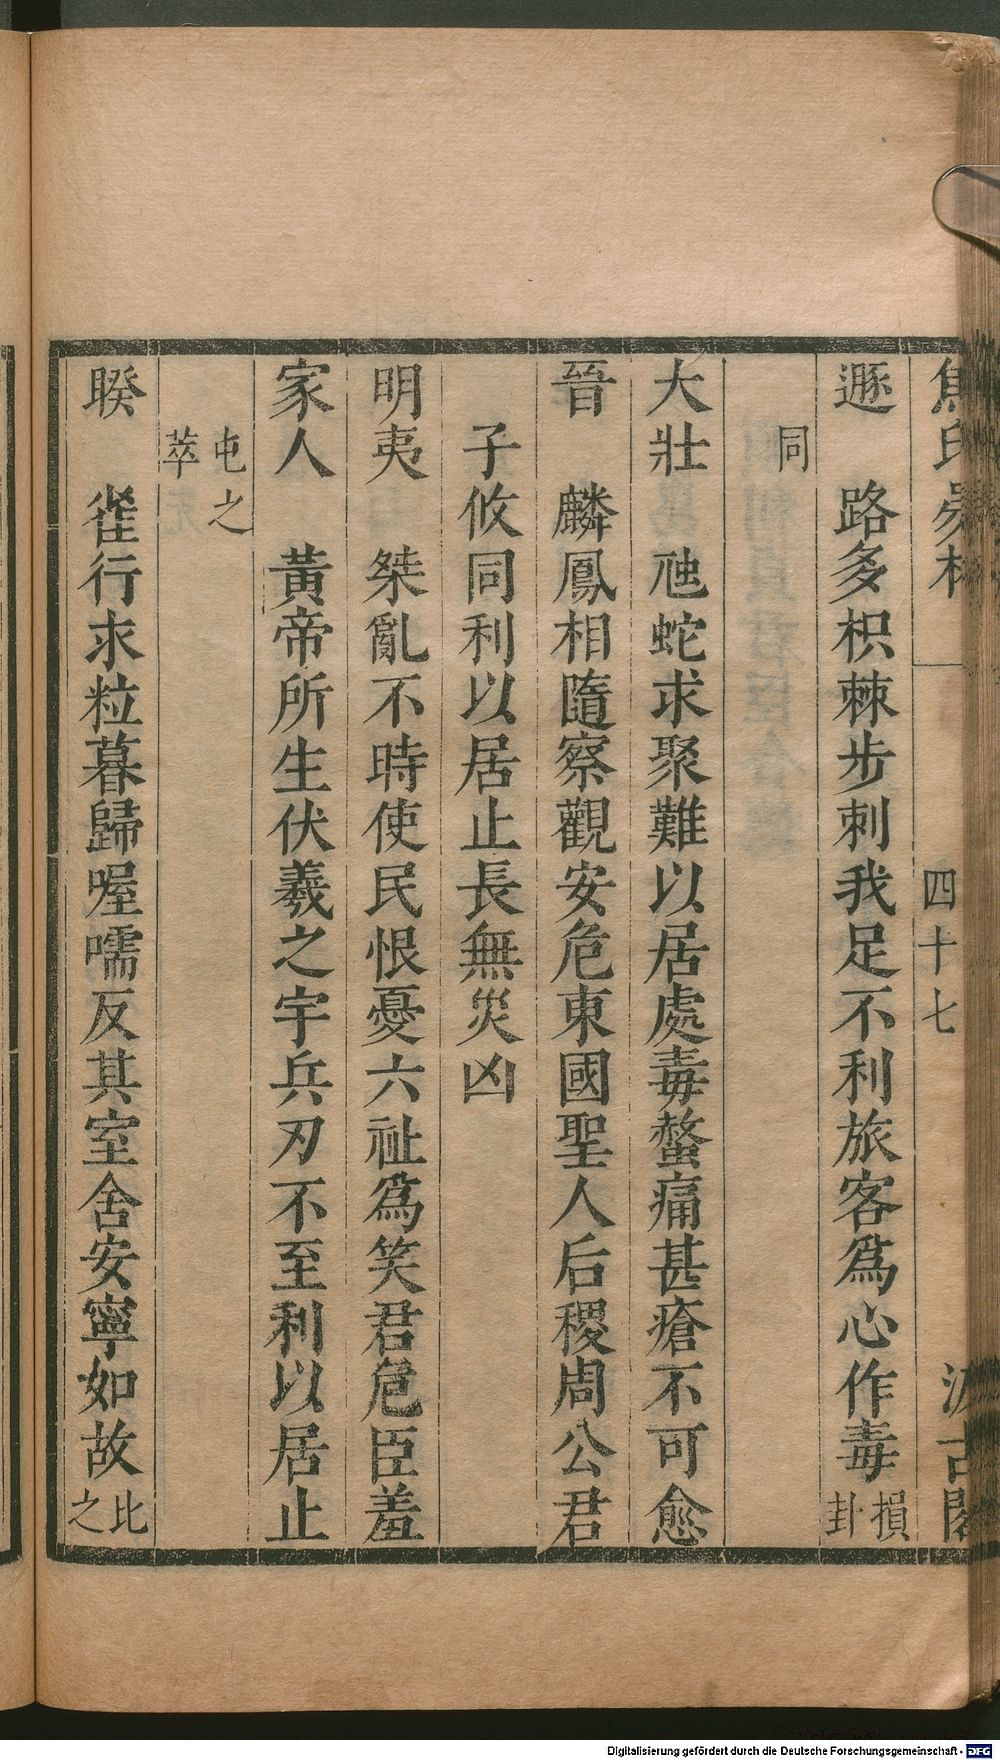 焦氏易林 四十七 汲古閣
遯 路多枳棘步刺我足不利旅客爲心作毒 損卦
同
大壯 虵蛇求聚難以居處毒螫痛甚瘡不可愈
晉 麟鳳相隨察觀安危東國聖人后稷周公君
子攸同利以居止長無災凶
明夷 桀亂不時使民恨憂六祉爲笑君危臣羞
家人 黃帝所生伏羲之宇兵刃不至利以居止
屯之萃
睽 雀行求粒暮歸喔嚅反其室舍安寧如故 比之
Digitalisierung gefördert durch die Deutsche Forschungsgemeinschaft - DFG